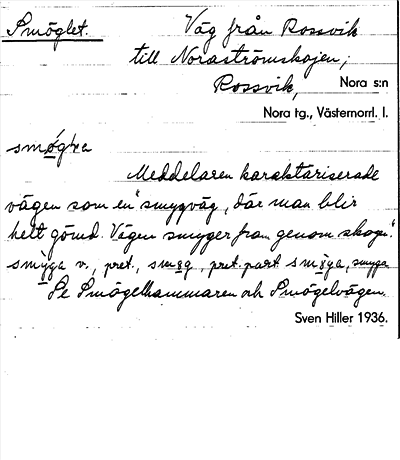 Smöglet. Väg från Rossvik
till Noraströmskojen;
Rossvik, Nora s:n
Nora tg., Västernorrl. l.
Meddelaren karaktäriserade
vägen som en "smygväg, där man blir
helt gömd. Vägen smyger fram genom skogen."
smyga v., pret., smøg, pret. part smöga, smyga
Se Smögelhammaren och Smögelvägen.
Sven Hiller 1936.